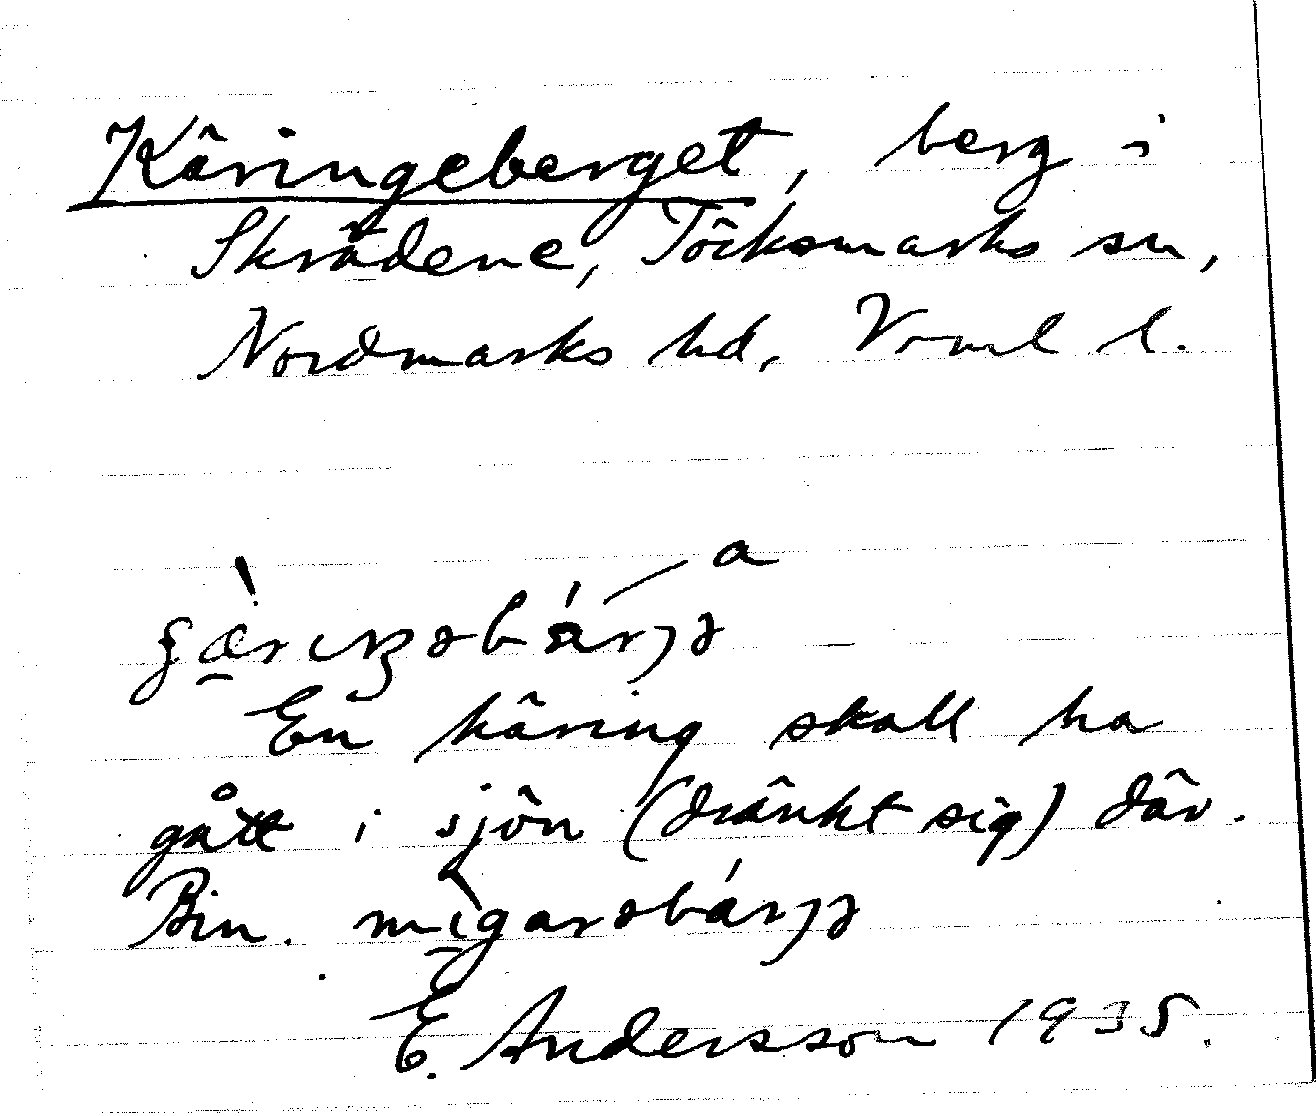 Käringeberget, berg i
Skrädene, Töcksmarks sn,
Nordmarks hd, Vrml l.
a
En käring skall ha
gått i sjön (dränkt sig) där.
Bin.
E. Andersson 1935.